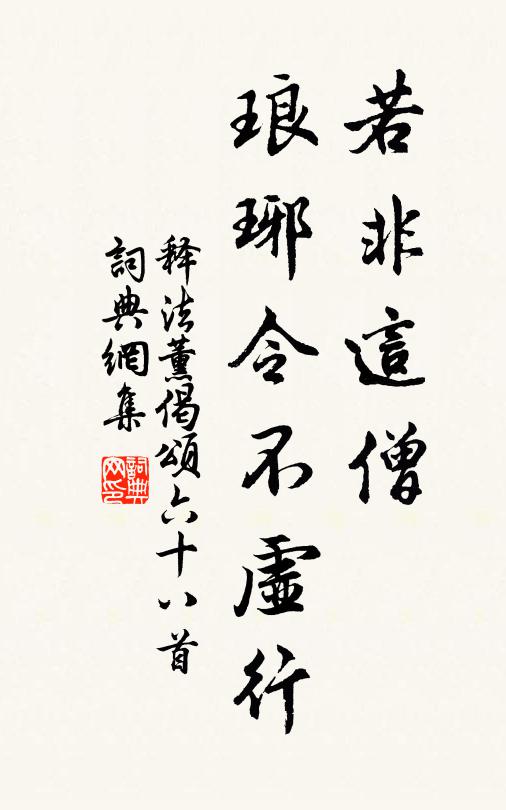 若非這僧
琅琊令不虛行
释法薰偈頌六十八首
詞典網集
詞典网印